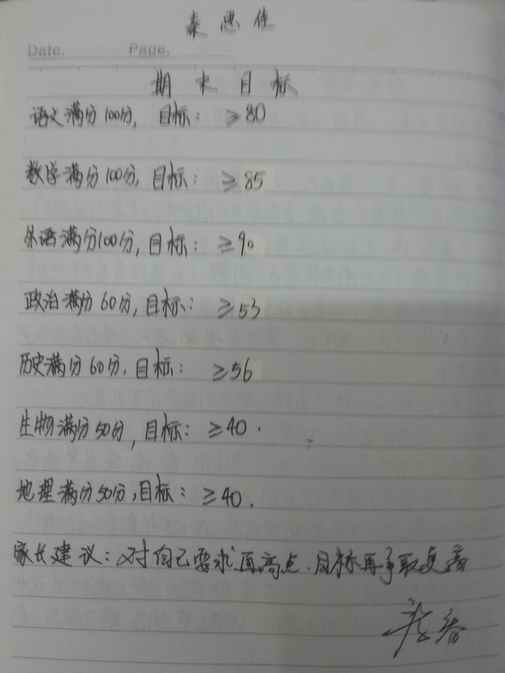 秦思佳
Date. Page.
期末目标
语文满分100分, 目标: ≥80
数学满分100分, 目标: ≥85
英语满分100分, 目标: ≥90
政治满分60分, 目标: ≥53
历史满分60分, 目标: ≥56
生物满分50分, 目标: ≥40.
地理满分50分, 目标: ≥40.
家长建议: 对自己要求再高点. 目标再争取更高